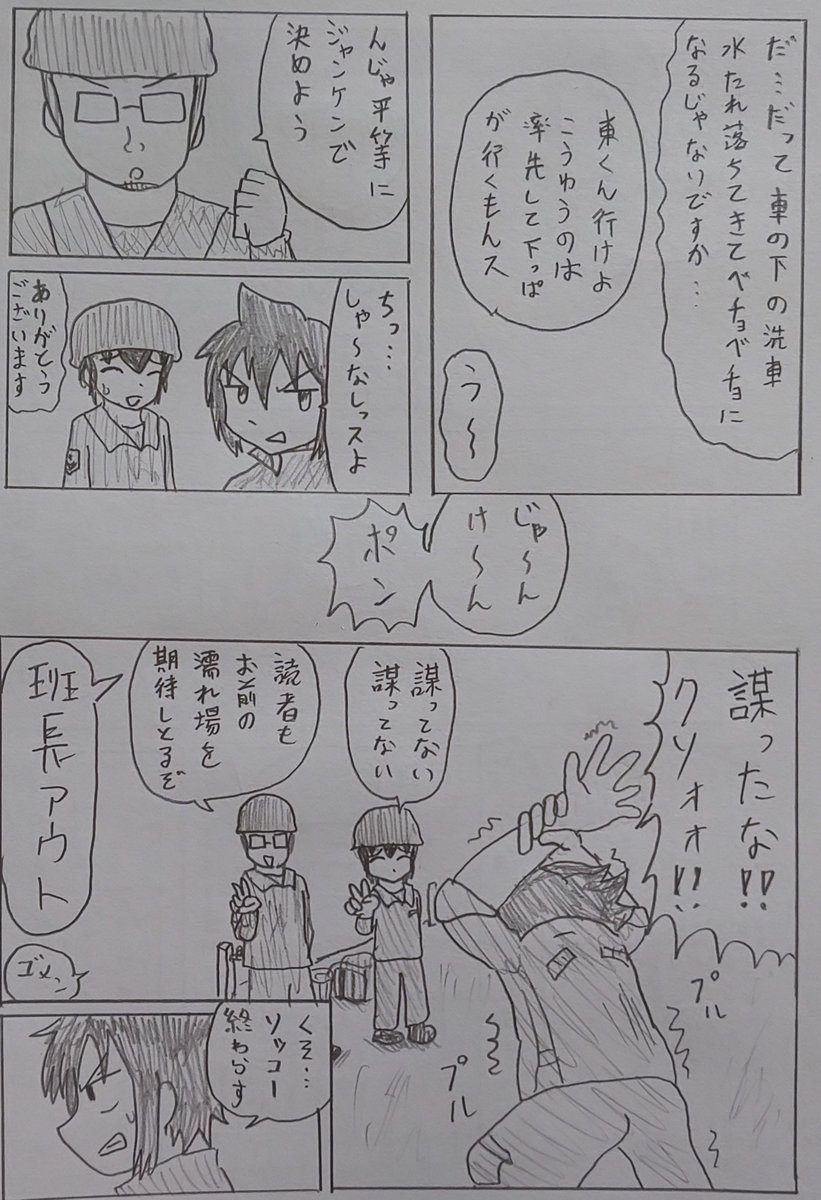 だ…だって車の下の洗車
水たれ落ちてきてベチョベチョに
なるじゃないですか…
東くん行けよ
こうゆうのは
率先して下っぱ
が行くもんス
う〜
んじゃ平等に
ジャンケンで
決めよう
ちっ…
しゃ〜なしっスよ
ありがとう
ございます
じゃ〜ん
け〜ん
ポン
謀ったな!!
クソォォ!!
プル
プル
謀ってない
謀ってない
読者も
お前の
濡れ場を
期待しとるぞ
班長アウト
ゴメン
くそ…
ソッコー
終わらす